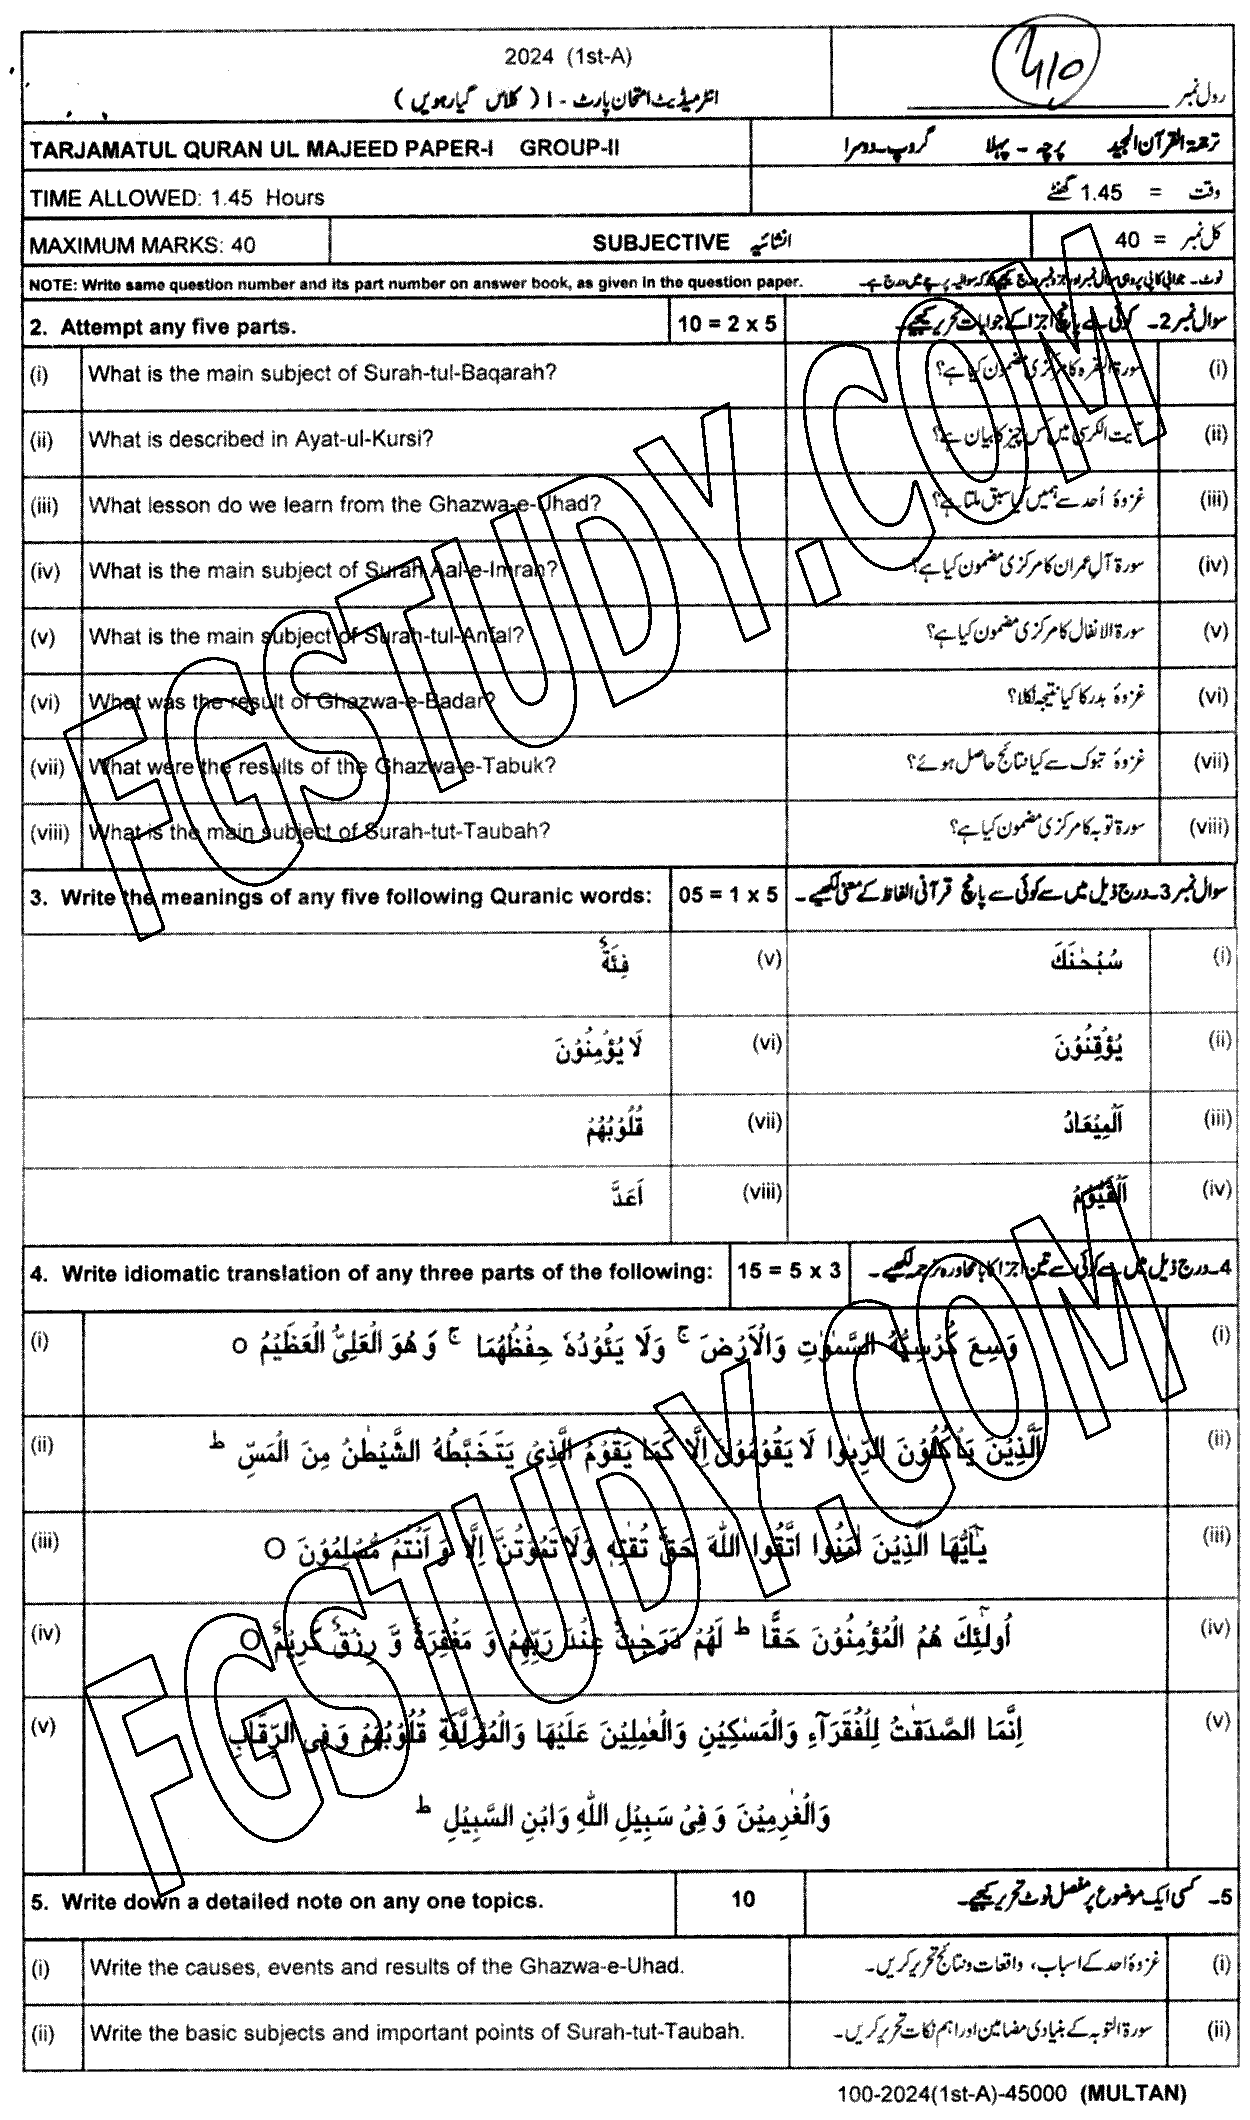 2024 (1st-A)
انٹرمیڈیٹ امتحان پارٹ - I ( کلاس گیارہویں )
رول نمبر
TARJAMATUL QURAN UL MAJEED PAPER-I GROUP-II
ترجمۃ القرآن المجید پرچہ - پہلا گروپ۔دوسرا
TIME ALLOWED: 1.45 Hours
وقت = 1.45 گھنٹے
MAXIMUM MARKS: 40
SUBJECTIVE انشائیہ
کل نمبر = 40
NOTE: Write same question number and its part number on answer book, as given in the question paper.
نوٹ۔ جوابی کاپی پر وہی سوال نمبر اور جزو نمبر درج کیجیے جو کہ سوالیہ پرچے میں درج ہے۔
2. Attempt any five parts.
10 = 2 x 5
سوال نمبر 2۔ کوئی سے پانچ اجزا کے جوابات تحریر کیجیے۔
(i) What is the main subject of Surah-tul-Baqarah?
سورۃ البقرہ کا مرکزی مضمون کیا ہے؟ (i)
(ii) What is described in Ayat-ul-Kursi?
آیت الکرسی میں کس چیز کا بیان ہے؟ (ii)
(iii) What lesson do we learn from the Ghazwa-e-Uhad?
غزوۂ اُحد سے ہمیں کیا سبق ملتا ہے؟ (iii)
(iv) What is the main subject of Surah Aal-e-Imran?
سورۃ آلِ عمران کا مرکزی مضمون کیا ہے؟ (iv)
(v) What is the main subject of Surah-tul-Anfal?
سورۃ الانفال کا مرکزی مضمون کیا ہے؟ (v)
(vi) What was the result of Ghazwa-e-Badar?
غزوۂ بدر کا کیا نتیجہ نکلا؟ (vi)
(vii) What were the results of the Ghazwa-e-Tabuk?
غزوۂ تبوک سے کیا نتائج حاصل ہوئے؟ (vii)
(viii) What is the main subject of Surah-tut-Taubah?
سورۃ توبہ کا مرکزی مضمون کیا ہے؟ (viii)
3. Write the meanings of any five following Quranic words:
05 = 1 x 5
سوال نمبر 3۔درج ذیل میں سے کوئی سے پانچ قرآنی الفاظ کے معنی لکھیے۔
سُبْحٰنَكَ (i)
فِئَةٌ (v)
يُوْقِنُوْنَ (ii)
لَا يُؤْمِنُوْنَ (vi)
اَلْمِيْعَادُ (iii)
قُلُوْبُهُمْ (vii)
اَلْقَيُّوْمُ (iv)
اَعَدَّ (viii)
4. Write idiomatic translation of any three parts of the following:
15 = 5 x 3
4۔درج ذیل میں سے کوئی سے تین اجزا کا بامحاورہ ترجمہ لکھیے۔
(i) وَسِعَ كُرْسِيُّهُ السَّمٰوٰتِ وَالْاَرْضَ ۚ وَلَا يَئُوْدُهٗ حِفْظُهُمَا ۚ وَ هُوَ الْعَلِيُّ الْعَظِيْمُ ○ (i)
(ii) اَلَّذِيْنَ يَاْكُلُوْنَ الرِّبٰوا لَا يَقُوْمُوْنَ اِلَّا كَمَا يَقُوْمُ الَّذِيْ يَتَخَبَّطُهُ الشَّيْطٰنُ مِنَ الْمَسِّ ؕ (ii)
(iii) يٰٓاَيُّهَا الَّذِيْنَ اٰمَنُوا اتَّقُوا اللّٰهَ حَقَّ تُقٰتِهٖ وَلَا تَمُوْتُنَّ اِلَّا وَ اَنْتُمْ مُّسْلِمُوْنَ ○ (iii)
(iv) اُولٰٓئِكَ هُمُ الْمُؤْمِنُوْنَ حَقًّا ؕ لَهُمْ دَرَجٰتٌ عِنْدَ رَبِّهِمْ وَ مَغْفِرَةٌ وَّ رِزْقٌ كَرِيْمٌ ○ (iv)
(v) اِنَّمَا الصَّدَقٰتُ لِلْفُقَرَآءِ وَالْمَسٰكِيْنِ وَالْعٰمِلِيْنَ عَلَيْهَا وَالْمُؤَلَّفَةِ قُلُوْبُهُمْ وَ فِى الرِّقَابِ (v)
وَالْغٰرِمِيْنَ وَ فِيْ سَبِيْلِ اللّٰهِ وَابْنِ السَّبِيْلِ ؕ
5. Write down a detailed note on any one topics.
10
5۔ کسی ایک موضوع پر مفصل نوٹ تحریر کیجیے۔
(i) Write the causes, events and results of the Ghazwa-e-Uhad.
غزوۂ احد کے اسباب، واقعات و نتائج تحریر کریں۔ (i)
(ii) Write the basic subjects and important points of Surah-tut-Taubah.
سورۃ التوبہ کے بنیادی مضامین اور اہم نکات تحریر کریں۔ (ii)
100-2024(1st-A)-45000 (MULTAN)
FGSTUDY.COM
FGSTUDY.COM